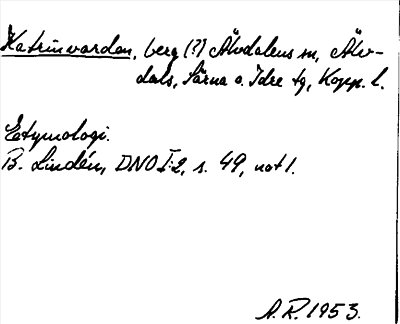 Katrinvarden, berg (?) Älvdalens sn, Älv-
dals, Särna o. Idre tg, Kopp. l.
Etymologi.
B. Lindén, DNO I:2, s. 49, not 1.
A.R. 1953.